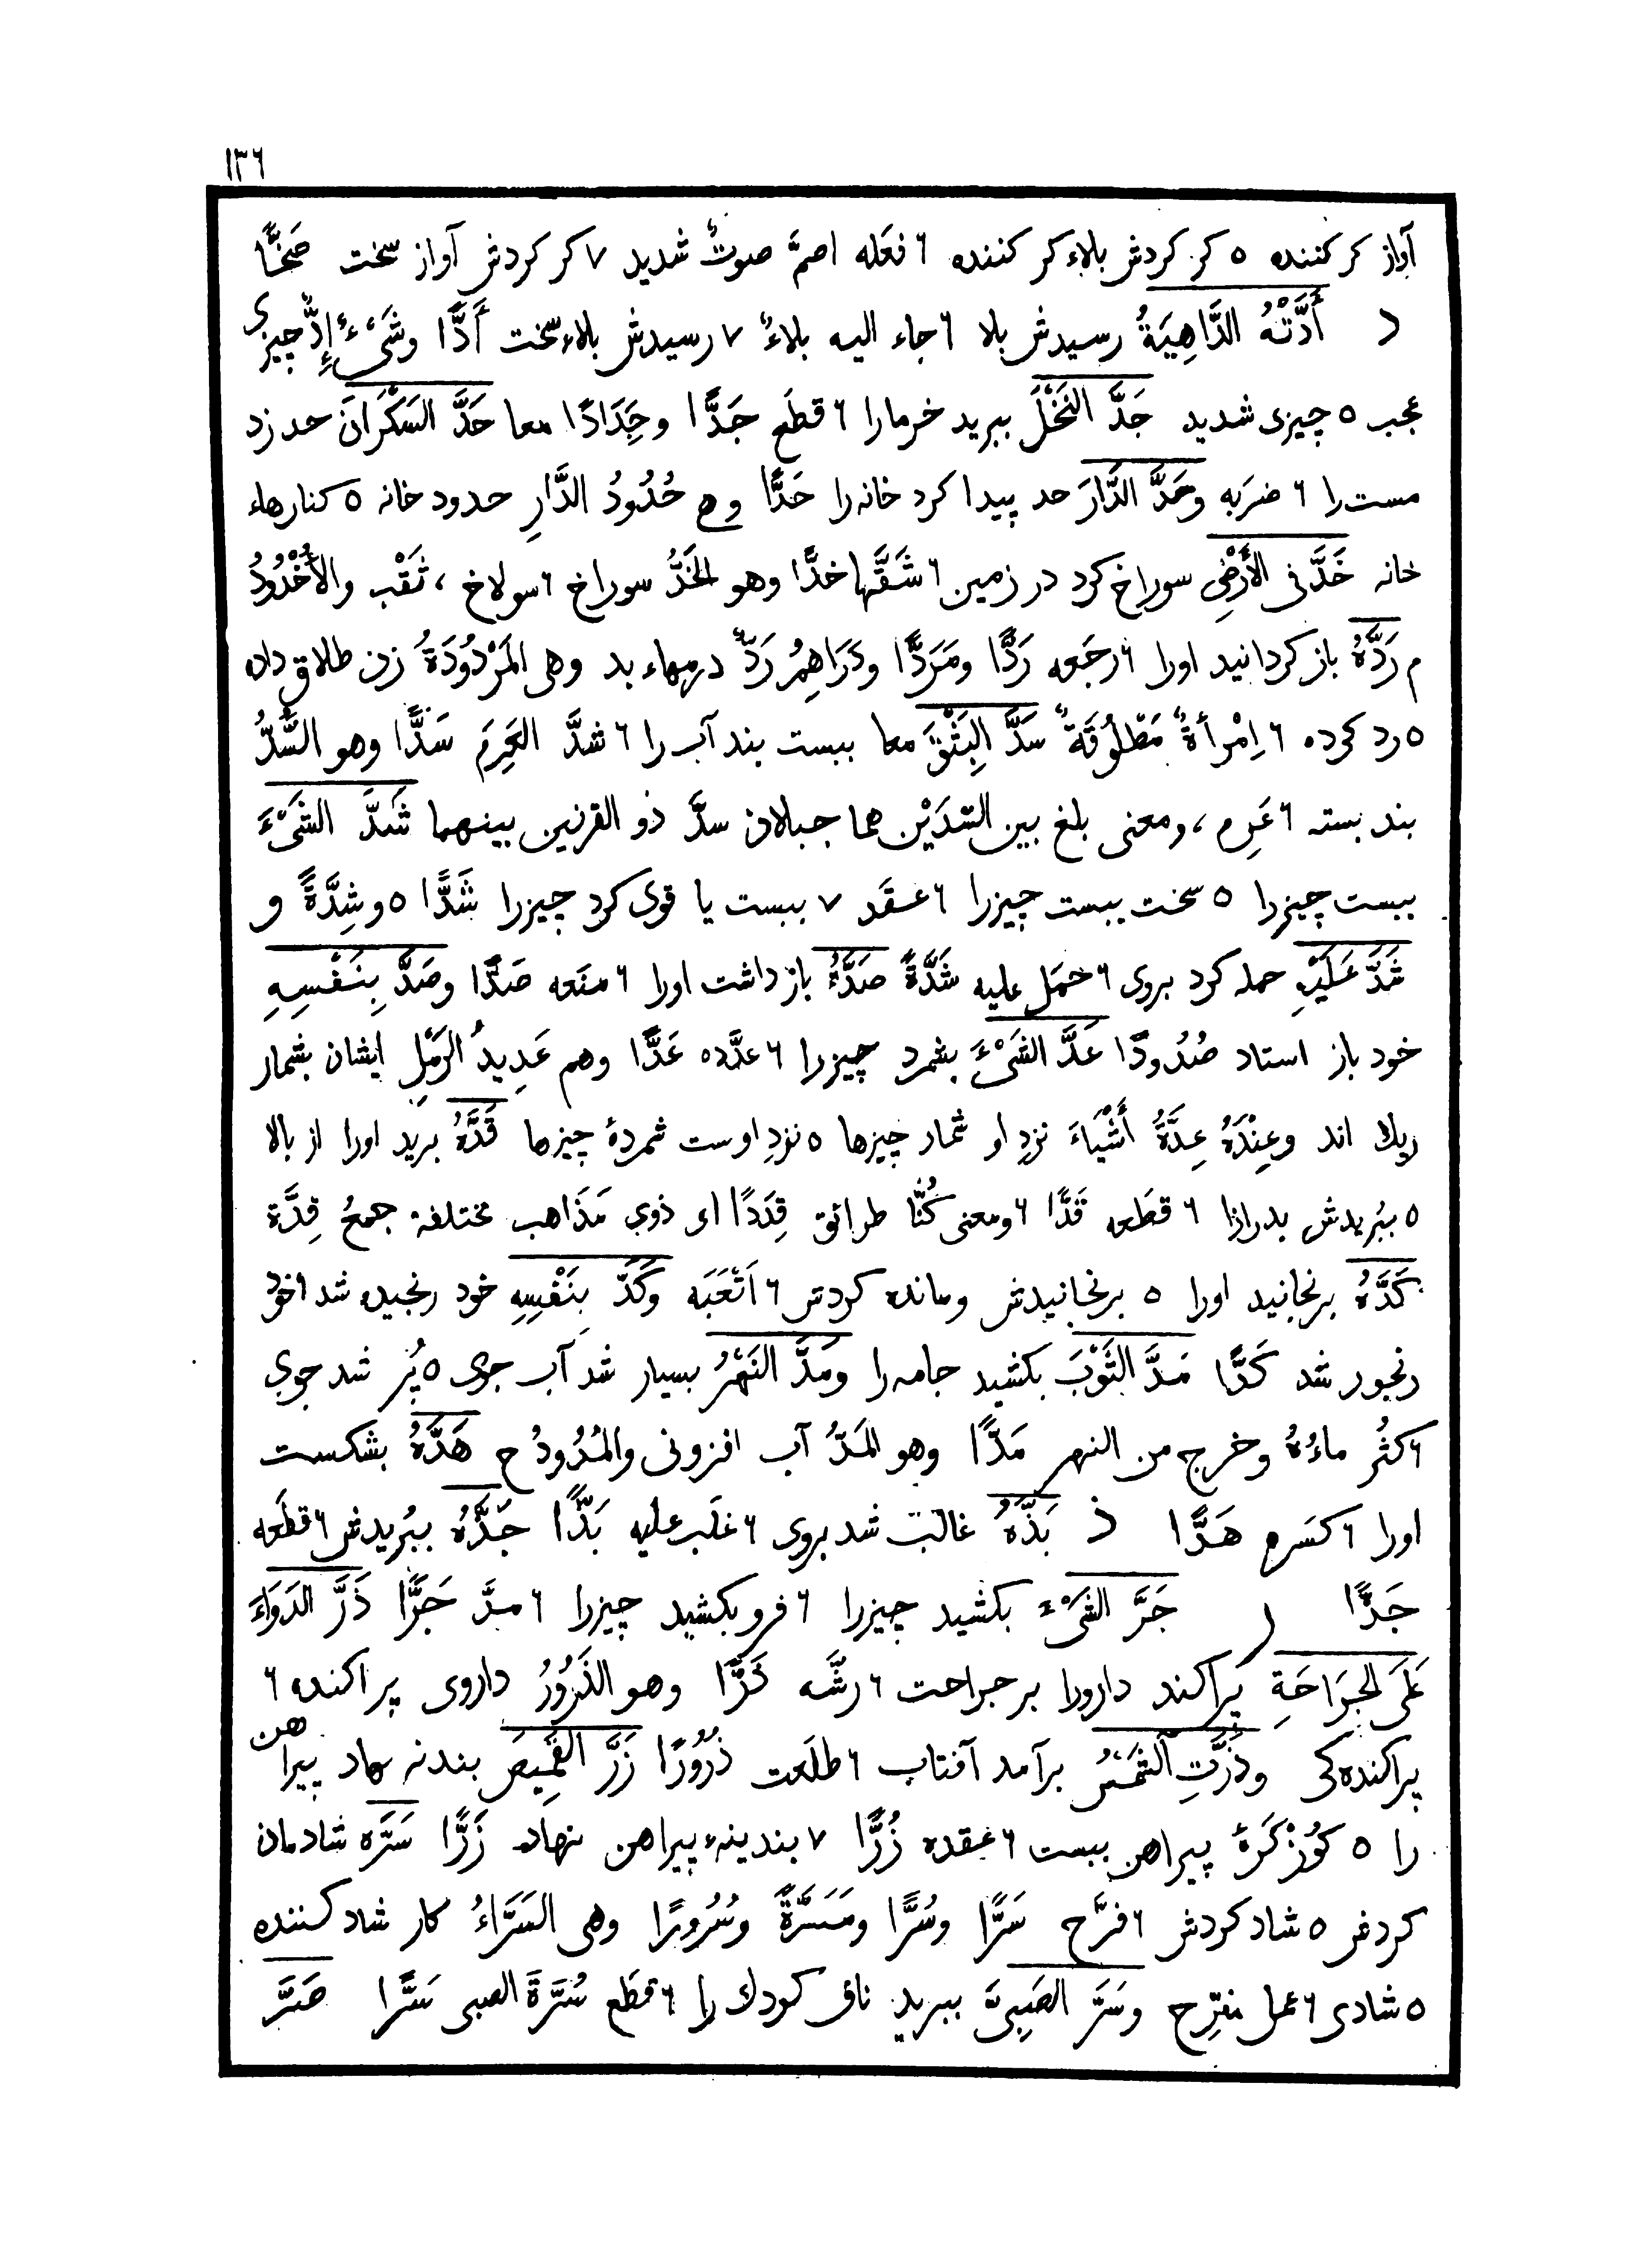 ١٣٦
آواز کر کننده ٥ کر کردش بلاء کر کننده ٦ فعَله اصمَّ صوتٌ شدید ٧ کر کردش آواز سخت صَخًّا
د أَدَّتْهُ الدَّاهِيَةُ رسیدش بلا ٦ جاء الیه بلاءٌ ٧ رسیدش بلاء سخت أَدًّا وشَیْءٌ إِدٌّ چیزی
عجب ٥ چیزی شدید جَدَّ النَّخْلَ ببرید خرمارا ٦ قطَع جَدًّا وجَِدَادًا معا حَدَّ السَّكْرَانَ حد زد
مست را ٦ ضرَبه وحَدَّ الدَّارَ حد پیدا کرد خانه را حَدًّا وح حُدُودُ الدَّارِ حدود خانه ٥ کنارهاء
خانه خَدَّ فی الأَرْضِ سوراخ کرد در زمین ٦ شَقَّها خدًّا وهو الخَدُّ سوراخ ٦ سولاخ ، ثَقْب والأُخْدُودُ
م رَدَّهُ باز کردانید اورا ٦ رجَعه رَدًّا ومَرَدًّا ودَرَاهِمُ رَدٌّ درمهاء بد وهی المَرْدُودَةُ زن طلاق داده
٥ رد کرده ٦ اِمْرأةٌ مَطْلُوقَةٌ سَدَّ البَِثْقَ معا ببست بند آب را ٦ شدَّ العَرِمَ سَدًّا وهو السَُّدُّ
بند بسته ٦ عَرِم ، ومعنی بلغ بین السَّدَيْن هما جبلان سدَّ ذو القرنین بینهما شَدَّ الشَّیْءَ
ببست چیزرا ٥ سخت ببست چیزرا ٦ عقَد ٧ ببست یا قوی کرد چیزرا شَدًّا ٥ وشِدَّةً و
شَدَّ عَلَيْهِ حمله کرد بروی ٦ حمَل علیه شَدَّةً صَدَّهُ بازداشت اورا ٦ منَعه صَدًّا وصَدَّ بِنَفْسِهِ
خود باز استاد صُدُودًا عَدَّ الشَّیْءَ بشمرد چیزرا ٦ عدَّده عَدًّا وهم عَدِیدُ الرَّمْلِ ایشان بشمار
ریك اند وعِنْدَهُ عِدَّةُ أَشْيَاءَ نزدِ او شمار چیزها ٥ نزدِ اوست شمردهٔ چیزها قَدَّهُ برید اورا از بالا
٥ ببُریدش بدرازا ٦ قطَعه قَدًّا ٦ ومعنی كُنَّا طرائق قِدَدًا ای ذوی مَذَاهب مختلفة جمعُ قِدَّة
كَدَّهُ برنجانید اورا ٥ برنجانیدش ومانده کردش ٦ اَتْعَبَه وكَدَّ بِنَفْسِهِ خود رنجیده شد اخوذ
رنجور شد كَدًّا مَدَّ الثَّوْبَ بکشید جامه را ومَدَّ النَّهْرُ بسیار شد آب جوی ٥ پُر شد جوی
٦ کثُر ماءُهُ وخرج من النهر مَدًّا وهو المَدُّ آب افزونی والمُدُودُ ح هَدَّهُ بشکست
اورا ٦ کسَره هَدًّا ذ بَذَّهُ غالب شد بروی ٦ غلَب علیه بَذًّا جَذَّهُ ببُریدش ٦ قطَعه
جَذًّا ر جَرَّ الشَّیْءَ بکشید چیزرا ٦ فرو بکشید چیزرا ٦ مدَّ جَرًّا ذَرَّ الدَوَاءَ
عَلَى الجِرَاحَةِ پراکند دارورا بر جراحت ٦ رشَّه ذَرًّا وهو الذَّرُورُ داروی پراکنده ٦
پراکنده کی وذَرَّتِ الشَّمْسُ برآمد آفتاب ٦ طلَعت ذُرُورًا زَرَّ القَمِيصَ بندنه نهاد پیراهن
را ٥ کُوزکَرهٔ پیراهن ببست ٦ عقده زُرًّا ٧ بندینهء پیراهن نهاد زَرًّا سَرَّه شادمان
کردش ٥ شاد کردش ٦ فرَّح سَرًّا وسُرًّا ومَسَرَّةً وسُرُورًا وهی السَرَّاءُ کار شاد کننده
٥ شادی ٦ عمل مفرِّح وسَرَّ الصَبِیَّ ببرید ناف کودك را ٦ قطَع سُرَّةَ الصبی سَرًّا صَرَّ